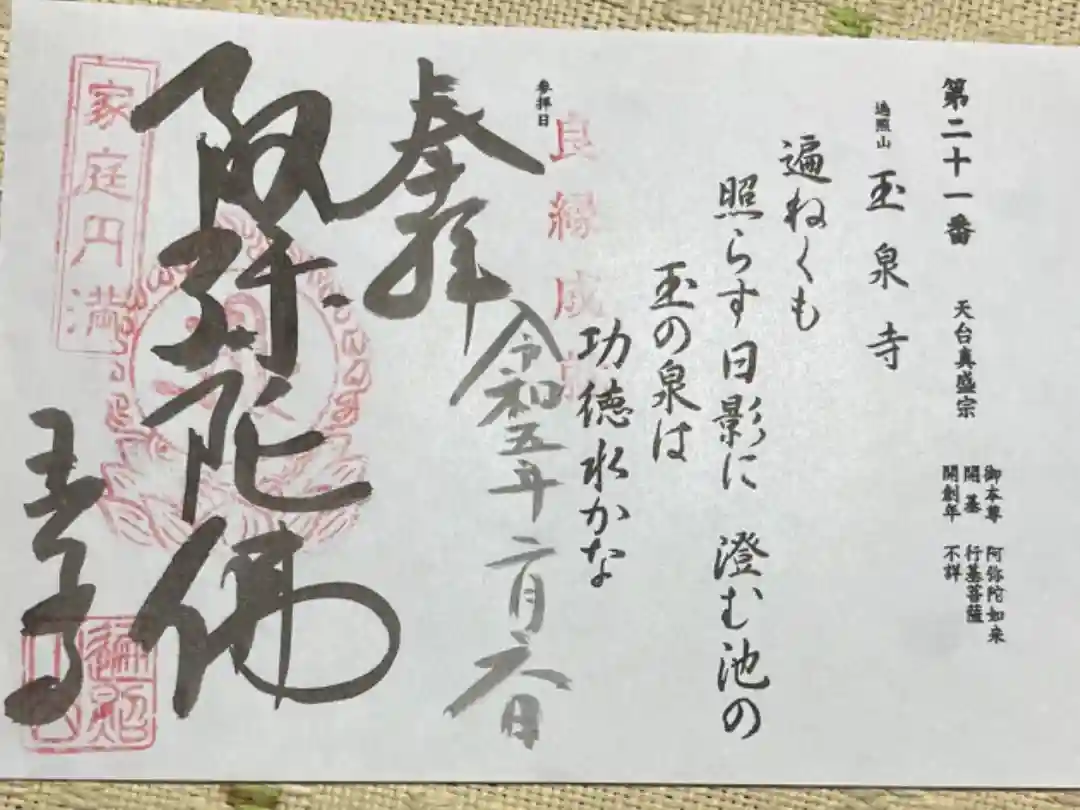 第二十一番
天台真盛宗
御本尊 阿弥陀如来
開基 行基菩薩
開創年 不詳
遍照山
玉泉寺
遍ねくも
照らす日影に 澄む池の
玉の泉は
功徳水かな
良縁成就
参拝日
奉拝
令和五年二月六日
阿弥陀佛
家庭円満
玉泉寺